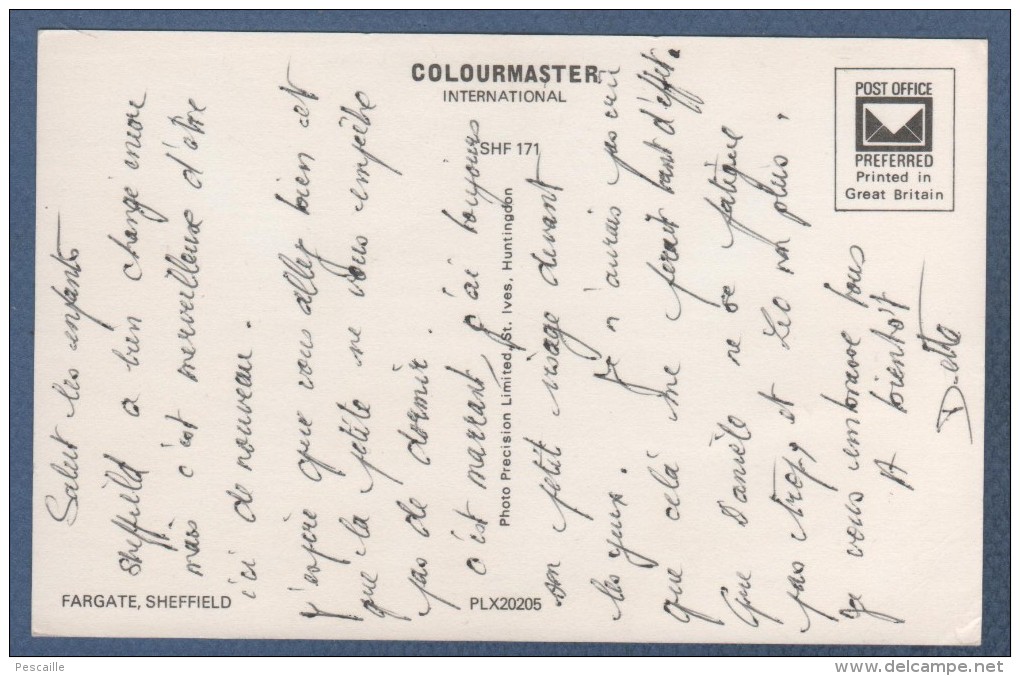 COLOURMASTER
INTERNATIONAL
SHF 171
POST OFFICE
PREFERRED
Printed in
Great Britain
Photo Precision Limited, St. Ives, Huntingdon
FARGATE, SHEFFIELD
PLX20205
Salut les enfants
Sheffield a bien changé encor
mais c'est merveilleux d'etre
ici de nouveau.
J'espère que vous allez bien et
que la petite ne vous empèche
pas de dormir.
c'est marrant, j'ai toujours
son petit visage devant
les yeux. Je n'aurais pas cru
que celà me ferait tant d'effet.
Que Danièle ne se fatigue
pas trop et Léo non plus,
Je vous embrasse tous
A bientôt
Pescaille
www.delcampe.net